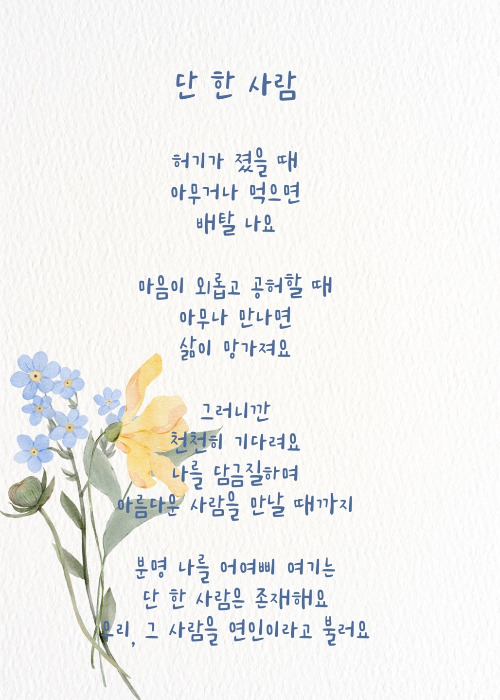 단 한 사람
허기가 졌을 때
아무거나 먹으면
배탈 나요
마음이 외롭고 공허할 때
아무나 만나면
삶이 망가져요
그러니깐
천천히 기다려요
나를 담금질하며
아름다운 사람을 만날 때까지
분명 나를 어여삐 여기는
단 한 사람은 존재해요
우리, 그 사람을 연인이라고 불러요